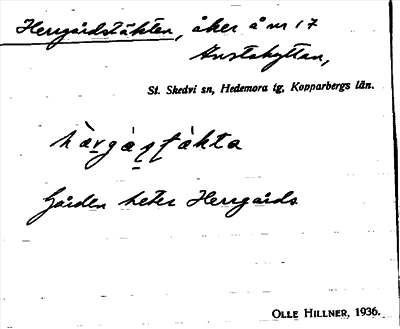 Herrgårdstäkten, åker å nr 17
Anstahyttan,
St. Skedvi sn, Hedemora tg, Kopparbergs län.
hàrgásstákta
Gården heter Herrgårds
OLLE HILLNER, 1936.